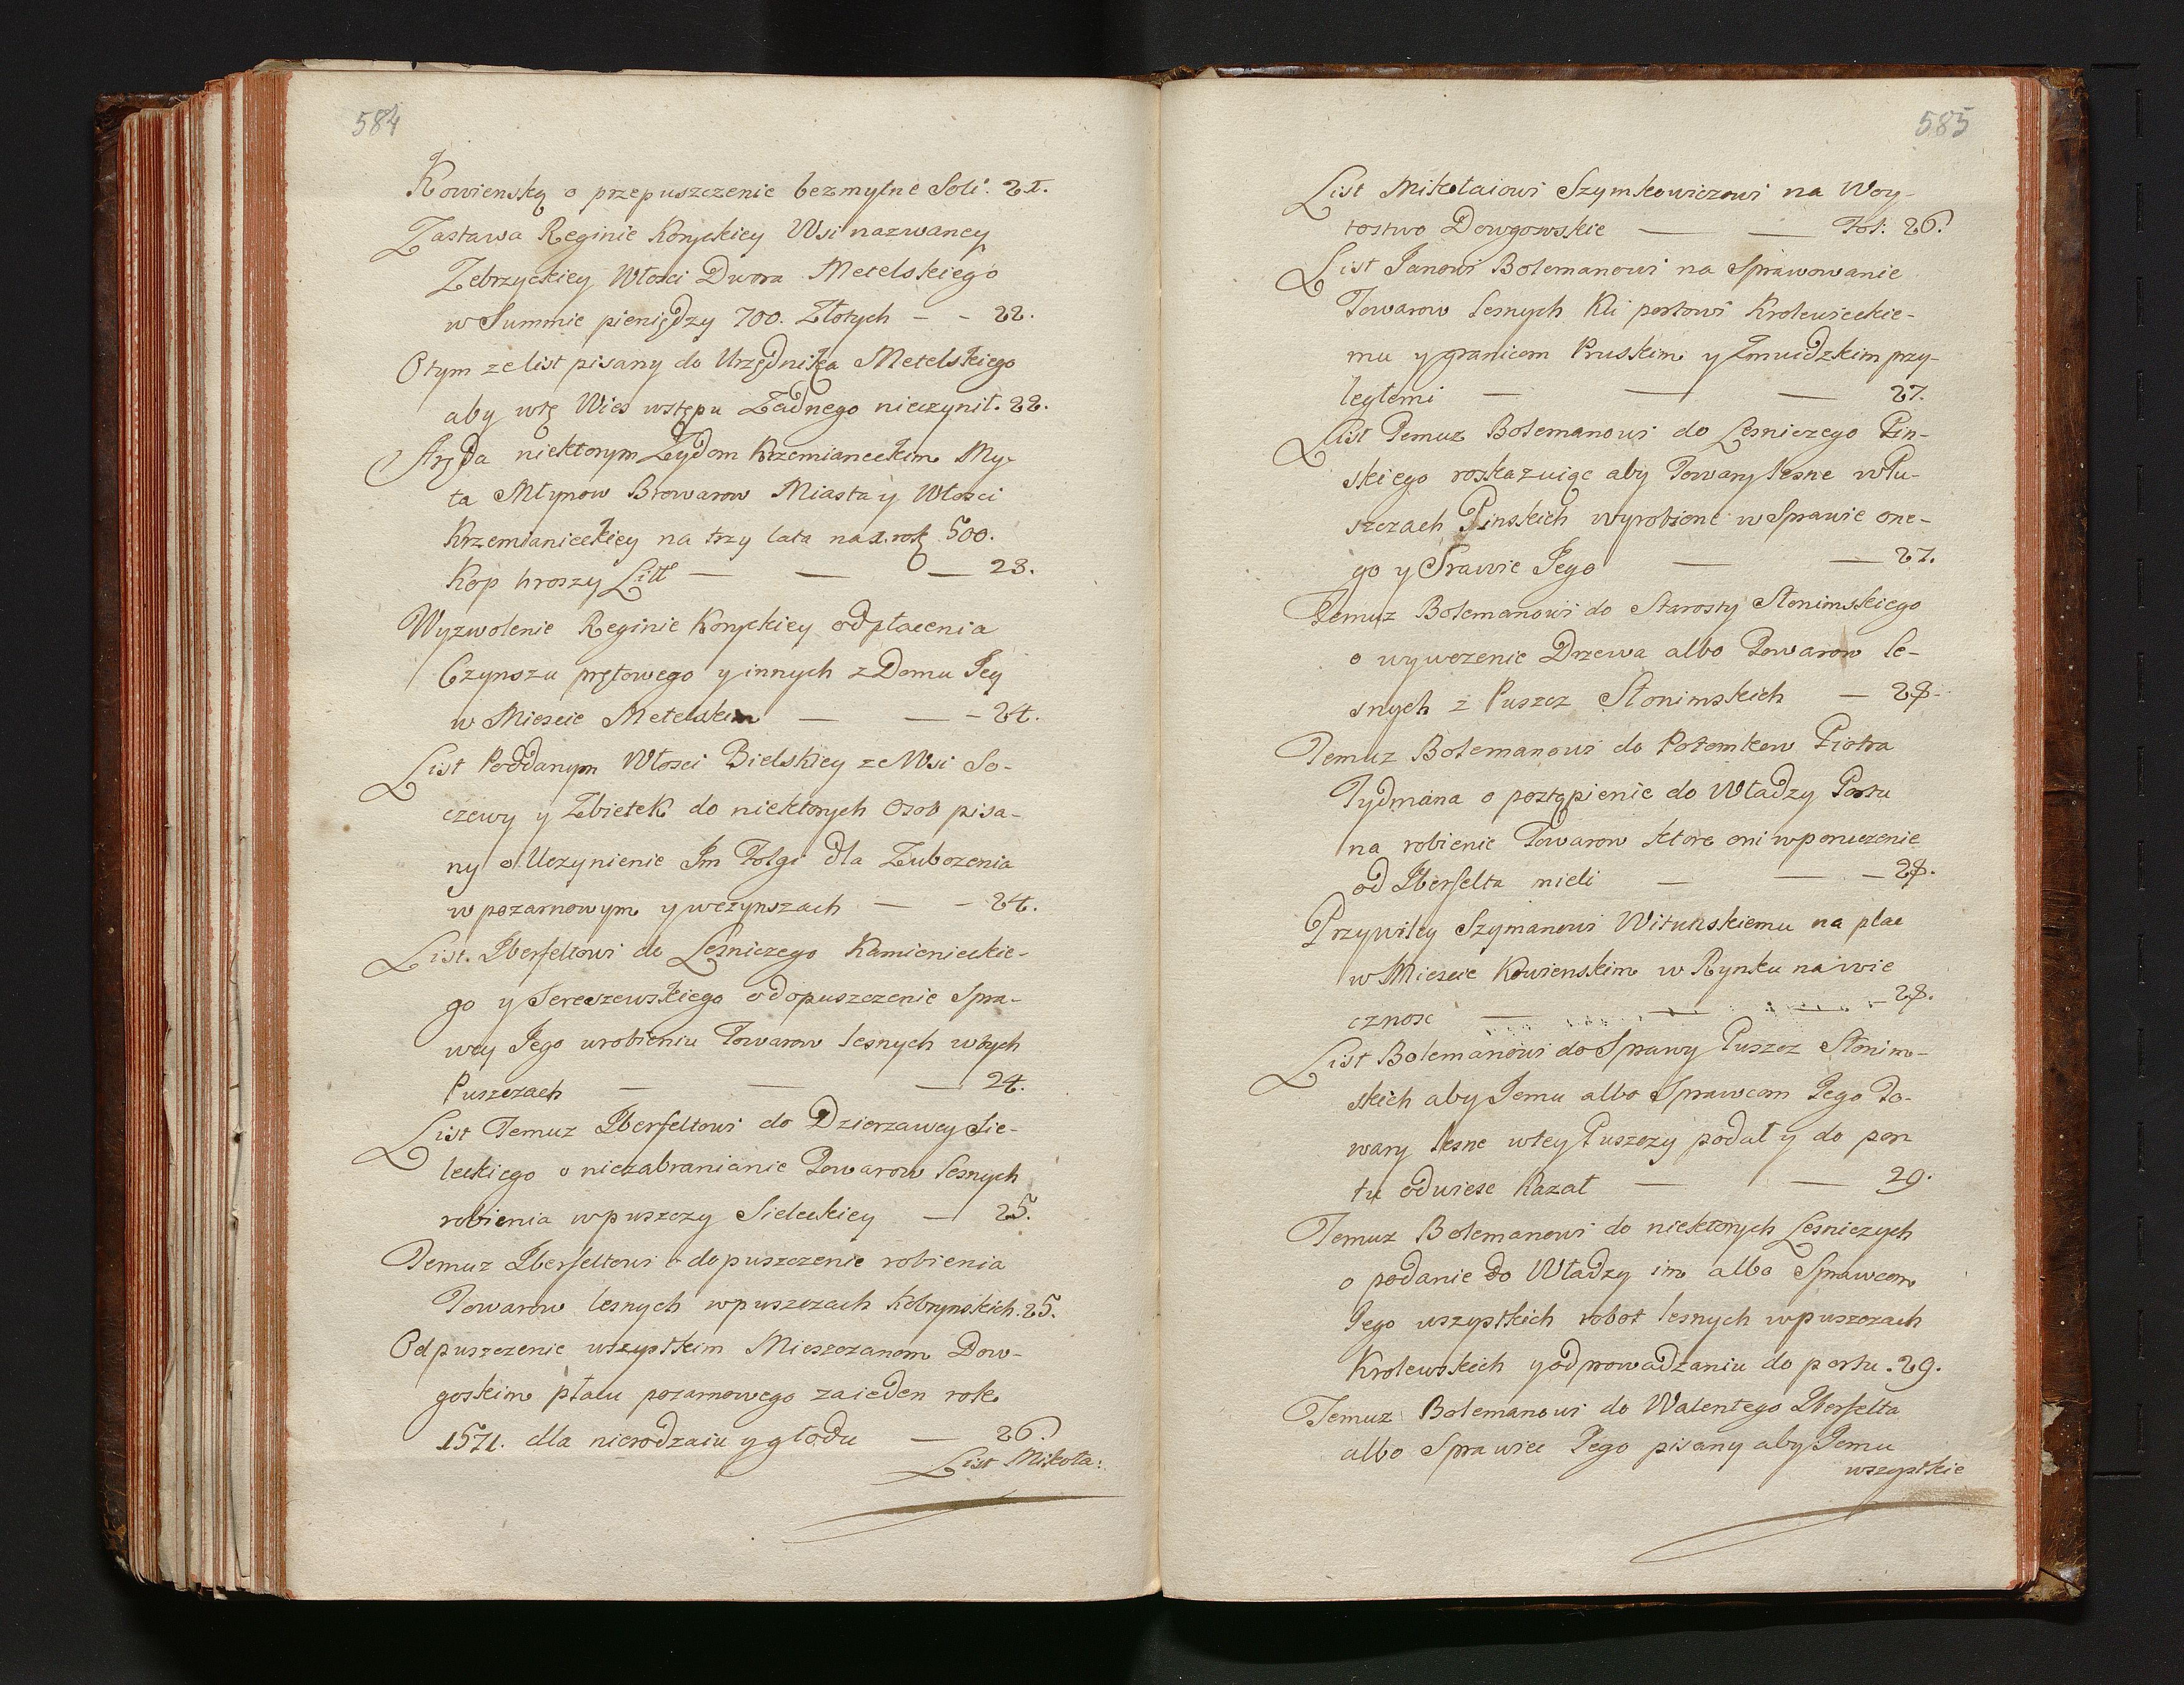 584
Kowienską o przepuszczenie bezmytne Soli. 21.
Zastawa Reginie Konyckiey Wsi nazwaney
Zebrzyckiey Włosci Dwora Metelskiego
w Summie pieniędzy 700. Złotych - - 22.
O tym ze list pisany do Urzędnika Metelskiego
aby wtę Wies wstępu Zadnego nieczynił. 22.
Aręda niektorym Zydom Krzemianeckim My-
ta Młynow Browarow Miasta y Włosci
Krzemianieckiey na trzy lata na 1. rok 500.
Kop hroszy Litt — — — 23.
Wyzwolenie Reginie Konyckiey od płacenia
Czynszu prętowego y innych z Domu Jey
w Miescie Metelskim — — - 24.
List Poddanym Włosci Bielskiey ze Wsi So-
czewy y Zbietek do niektorych Osob pisa-
ny o Uczynienie Im Folgi dla Zubozenia
w pozarnowym y wczynszach — - 24.
List. Iberfeltowi do Lesniczego Kamienieckie-
go y Sereszewskiego o dopuszczenie Spra-
wcy Jego urobieniu Towarow lesnych wtych
Puszczach — — — 24.
List Temuz Iberfeltowi do Dzierzawcy Sie-
leckiego o niezabranianie Towarow lesnych
robienia wpuszczy Sieleckiey — 25.
Temuz Iberfeltowi o dopuszczenie robienia
Towarow lesnych wpuszczach Kobrynskich. 25.
Odpuszczenie wszystkim Mieszczanom Dow-
goskim płatu pozarnowego za ieden rok
1571. dla nierodzaiu y głodu — 26.
List Mikoła:
585
List Mikołaiowi Szymkowiczowi na Woy-
tostwo Dowgowskie — — Fol: 26.
List Janowi Bolemanowi na Sprawowanie
Towarow lesnych Ku portowi Krolewieckie-
mu y granicom Pruskim y Zmuidzkim przy-
ległemi — — — 27.
List Temuz Bolemanowi do Lesniczego Pin-
skiego roskazuiąc aby Towary lesne wPu-
szczach Pinskich wyrobione w Sprawie one-
go y Prawie Jego — — 27.
Temuz Bolemanowi do Starosty Słonimskiego
o wywozenie Drzewa albo Towarow le-
snych z Puszcz Słonimskich — 28.
Temuz Bolemanowi do Potemkow Piotra
Tydmana o postąpienie do Władzy Portu
na robienie Towarow ktore oni wporuczenie
od Iberfelta mieli — — — 28.
Przywiley Szymanowi Witunskiemu na plac
w Miescie Kowienskim w Rynku na wie
cznosc — — — 28.
List Bolemanowi do Sprawy Puszcz Słonim-
skich aby Jemu albo Sprawcom Jego To-
wary lesne wtey Puszczy podał y do por
tu odwiesc Kazał — — 29.
Temuz Bolemanowi do niektorych Lesniczych
o podanie do Władzy im albo Sprawcom
Jego wszystkich robot lesnych wpuszczach
Krolewskich y odprowadzaniu do portu. 29.
Temuz Bolemanowi do Walentego Iberfelta
albo Sprawice Jego pisany aby Jemu
wszystkie